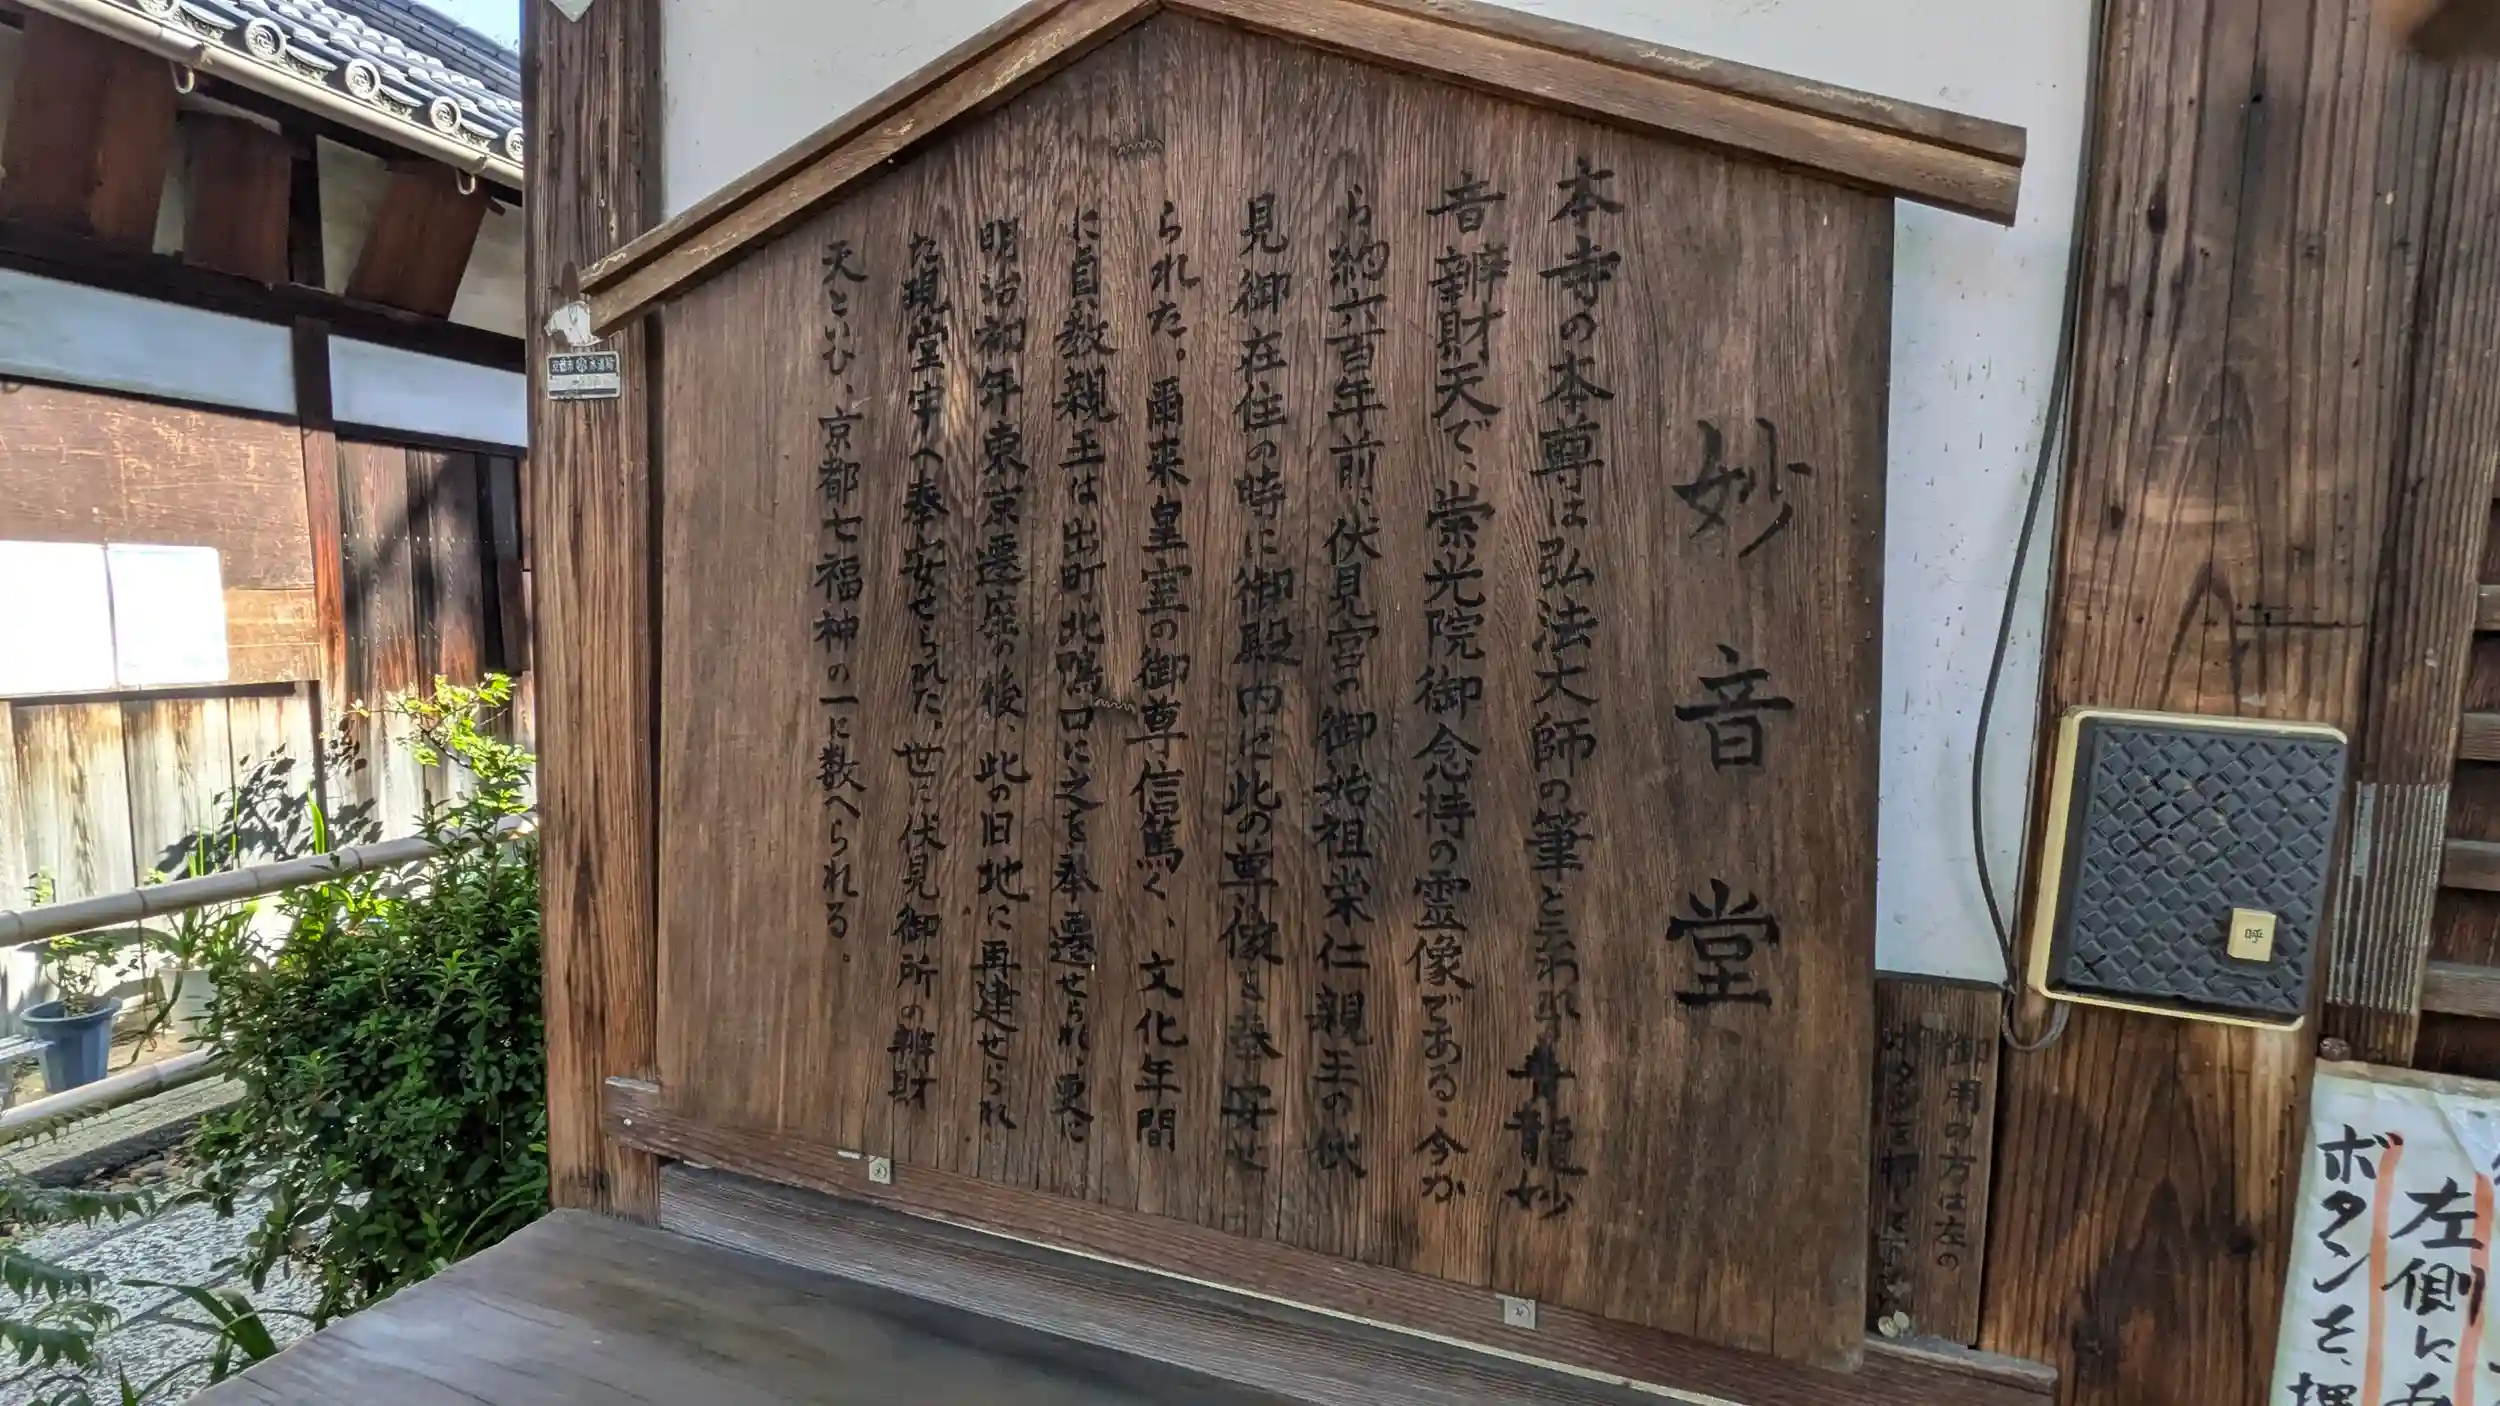 妙音堂
本寺の本尊は弘法大師の筆と云われ青龍妙
音辨財天で、崇光院御念持の霊像である。今か
ら約六百年前、伏見宮の御始祖栄仁親王の伏
見御在住の時に御殿内に此の尊像を奉安せ
られた。爾来皇室の御尊信篤く、文化年間
に貞敬親王は出町北鴨口に之を奉遷せられ、更に
明治初年東京遷座の後、此の旧地に再建せられ
た現堂宇へ奉安せられた。世に伏見御所の辨財
天といひ、京都七福神の一に数へられる。
御用の方は左の
ボタンを押し
呼
左側に
ボタンを、押